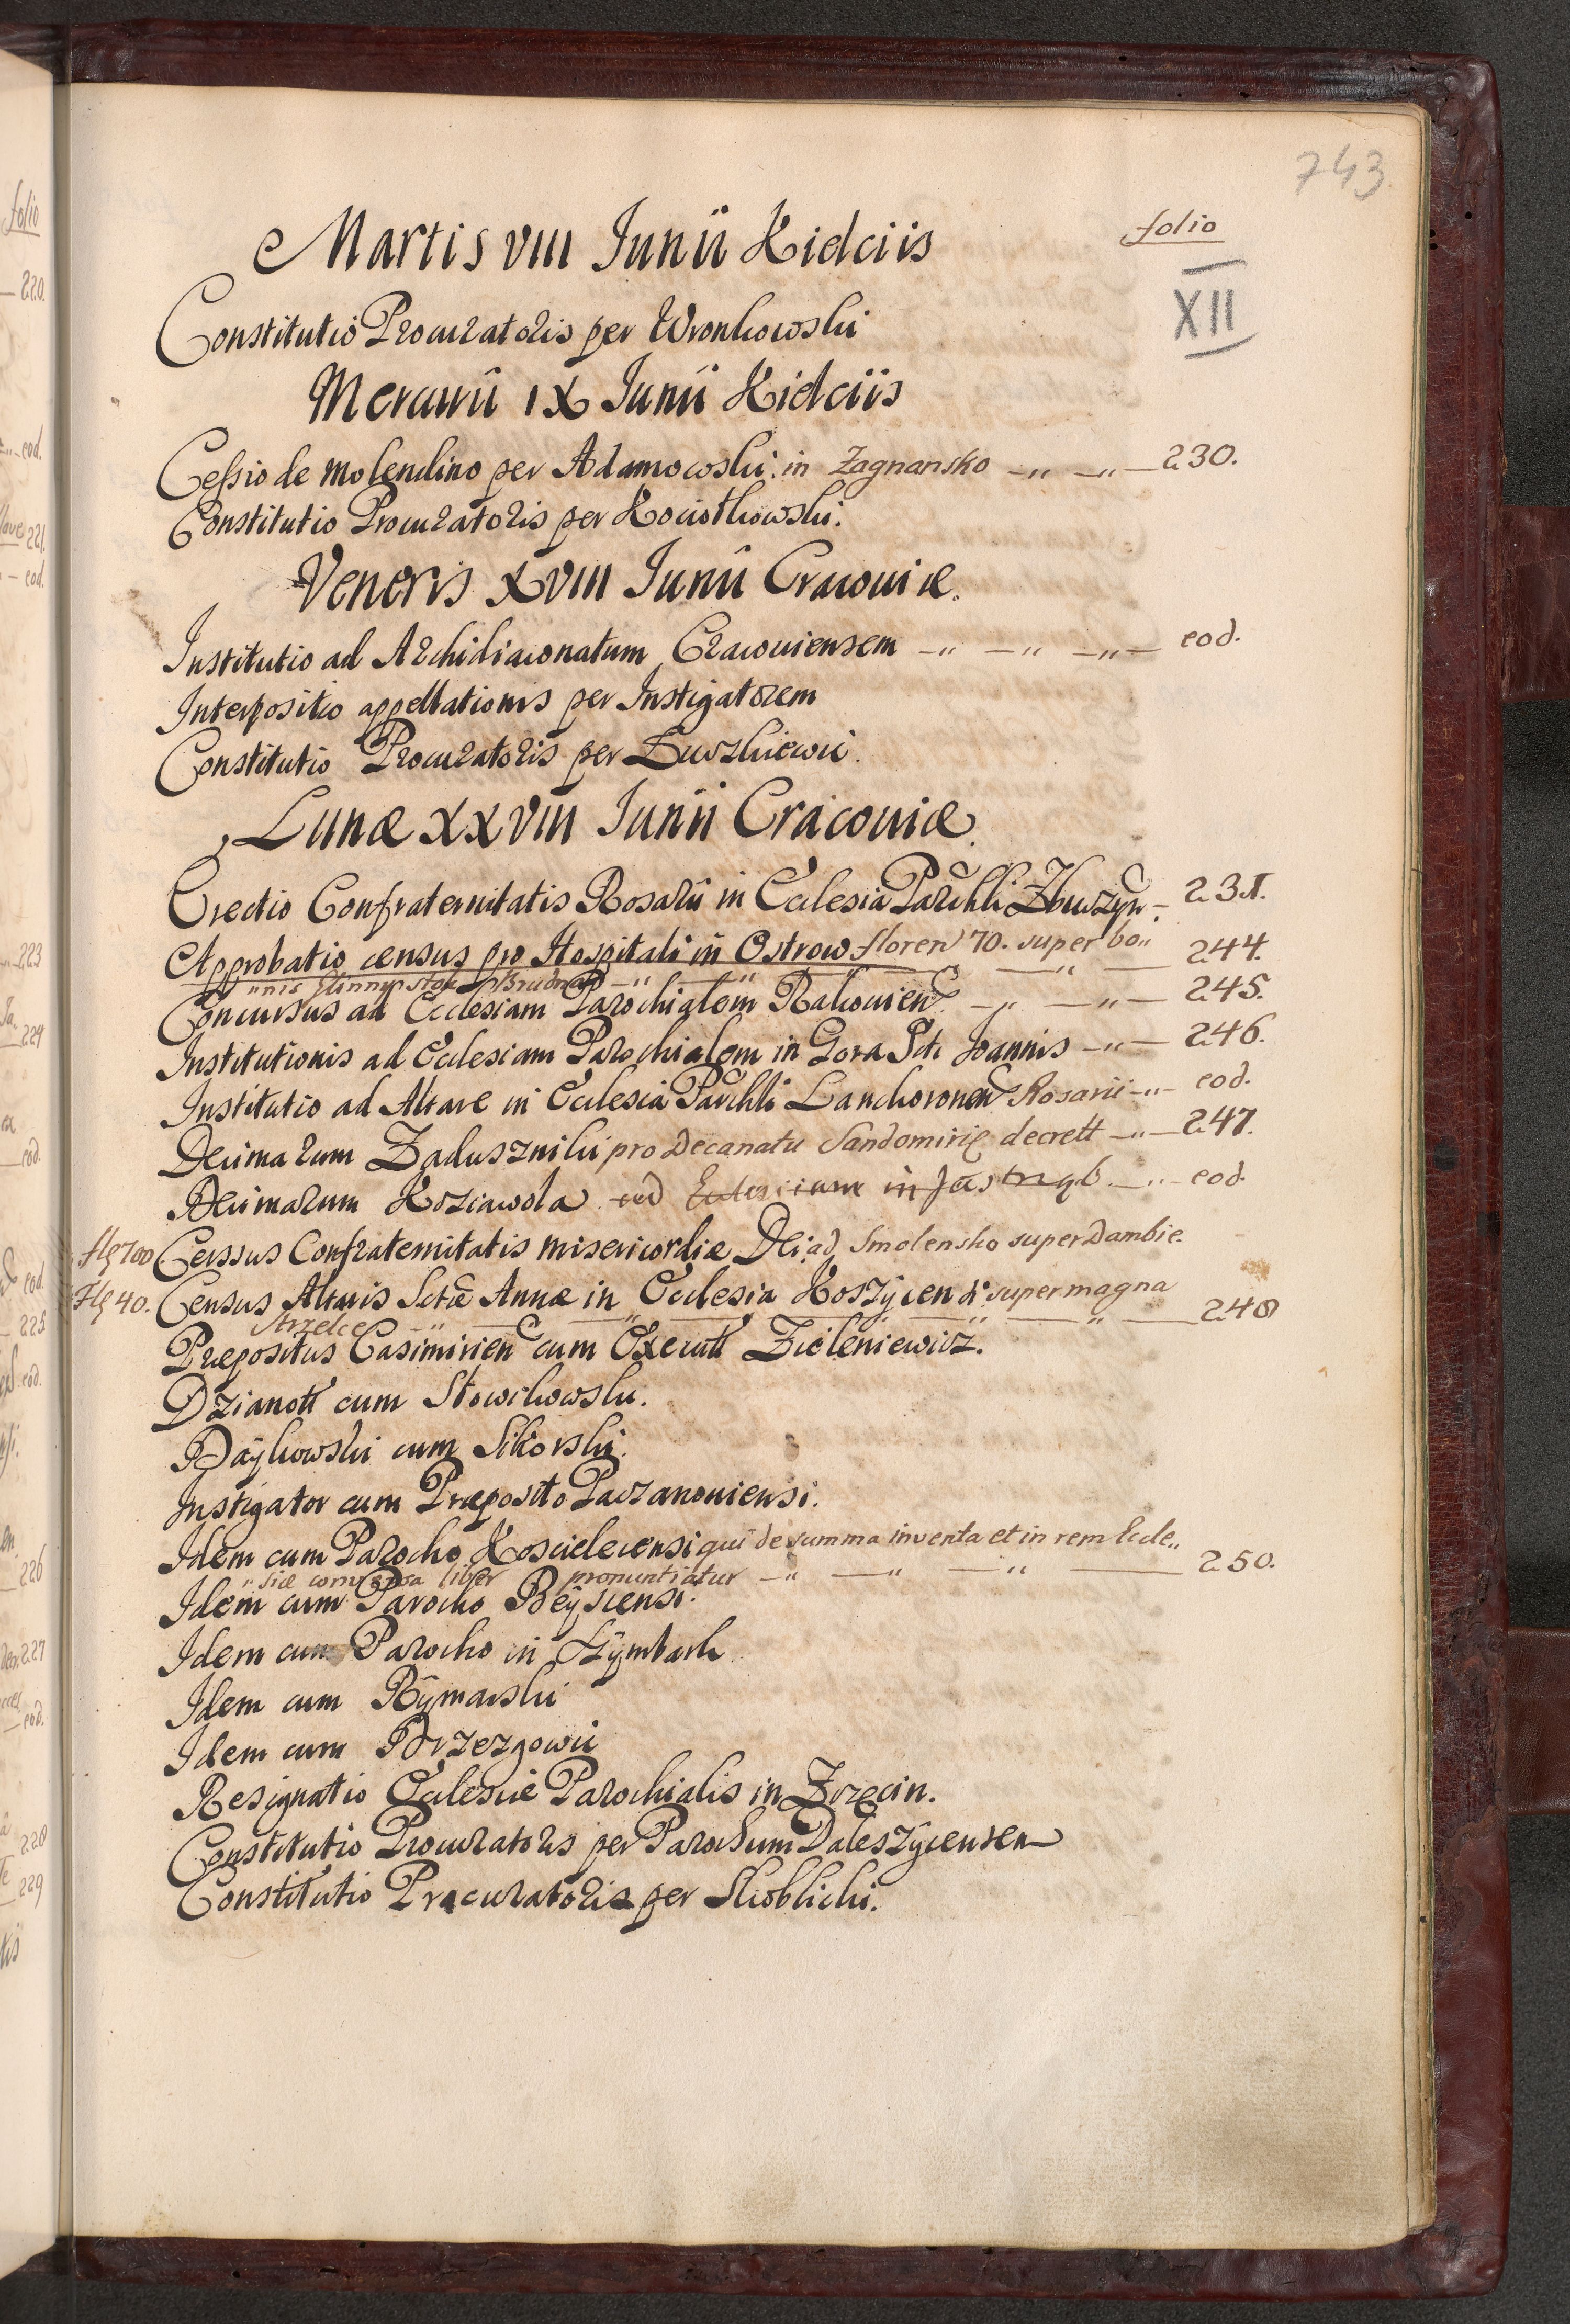 743
folio
XII
Martis VIII Junii Kielciis
Constitutio Procuratoris per Wronkowski
Mercurii IX Junii Kielciis
Cessio de molendino per Adamowski: in Zagnansko —„ —„— 230.
Constitutio Procuratoris per Kociołkowski.
Veneris XVIII Junii Cracoviæ.
Institutio ad Archidiaconatum Cracoviensem —„ —„ —„— eod.
Interpositio appellationis per Instigatorem
Constitutio Procuratoris per
Lunæ XXVIII Junii Cracoviæ.
Erectio Confraternitatis Rosarii in Ecclesia Parchli — 231.
Approbatio census pro Hospitali in Ostrow floren 70. super bo„
„nis — „ — „ — „ — 244.
Concursus ad Ecclesiam Parochialem Rakovien —„ —„— 245.
Institutionis ad Ecclesiam Parochialem in Gora Sti Joannis —„— 246.
Institutio ad Altare in Ecclesia Parchli Lanckoronen Rosarii —„— eod.
Decimarum Zadusznilii pro Decanatu Sandomiriæ decrett —„— 247.
Decimarum Kozciawola ad Ecclesiam in Jastrząb. —„— eod.
flę 700 Censsus Confraternitatis misericordiæ Dei ad Smolensko super Dambie.
Flę 40. Census Altaris Sctæ Annæ in Ecclesia Koszycen di super magna
Strzelce —„ — „ — „ — „ — 248
Præpositus Casimirien cum Executt Zieleniewicz.
Dzianott cum Słowikowski.
Baykowski cum Sikorski.
Instigator cum Præposito Paczanoviensi.
Idem cum Parocho Koscielecensi qui de summa inventa et in rem Eccle„
„siæ conversa liber pronuntiatur —„ —„ —„ — 250.
Idem cum Parocho Beyscensi.
Idem cum Parocho in Szymbark
Idem cum Rymarski
Idem cum Brzezgowii
Resignatio Ecclesiæ Parochialis in Zręcin.
Constitutio Procuratoris per Parochum Daleszycensem
Constitutio Procuratoris per Skoblicki.